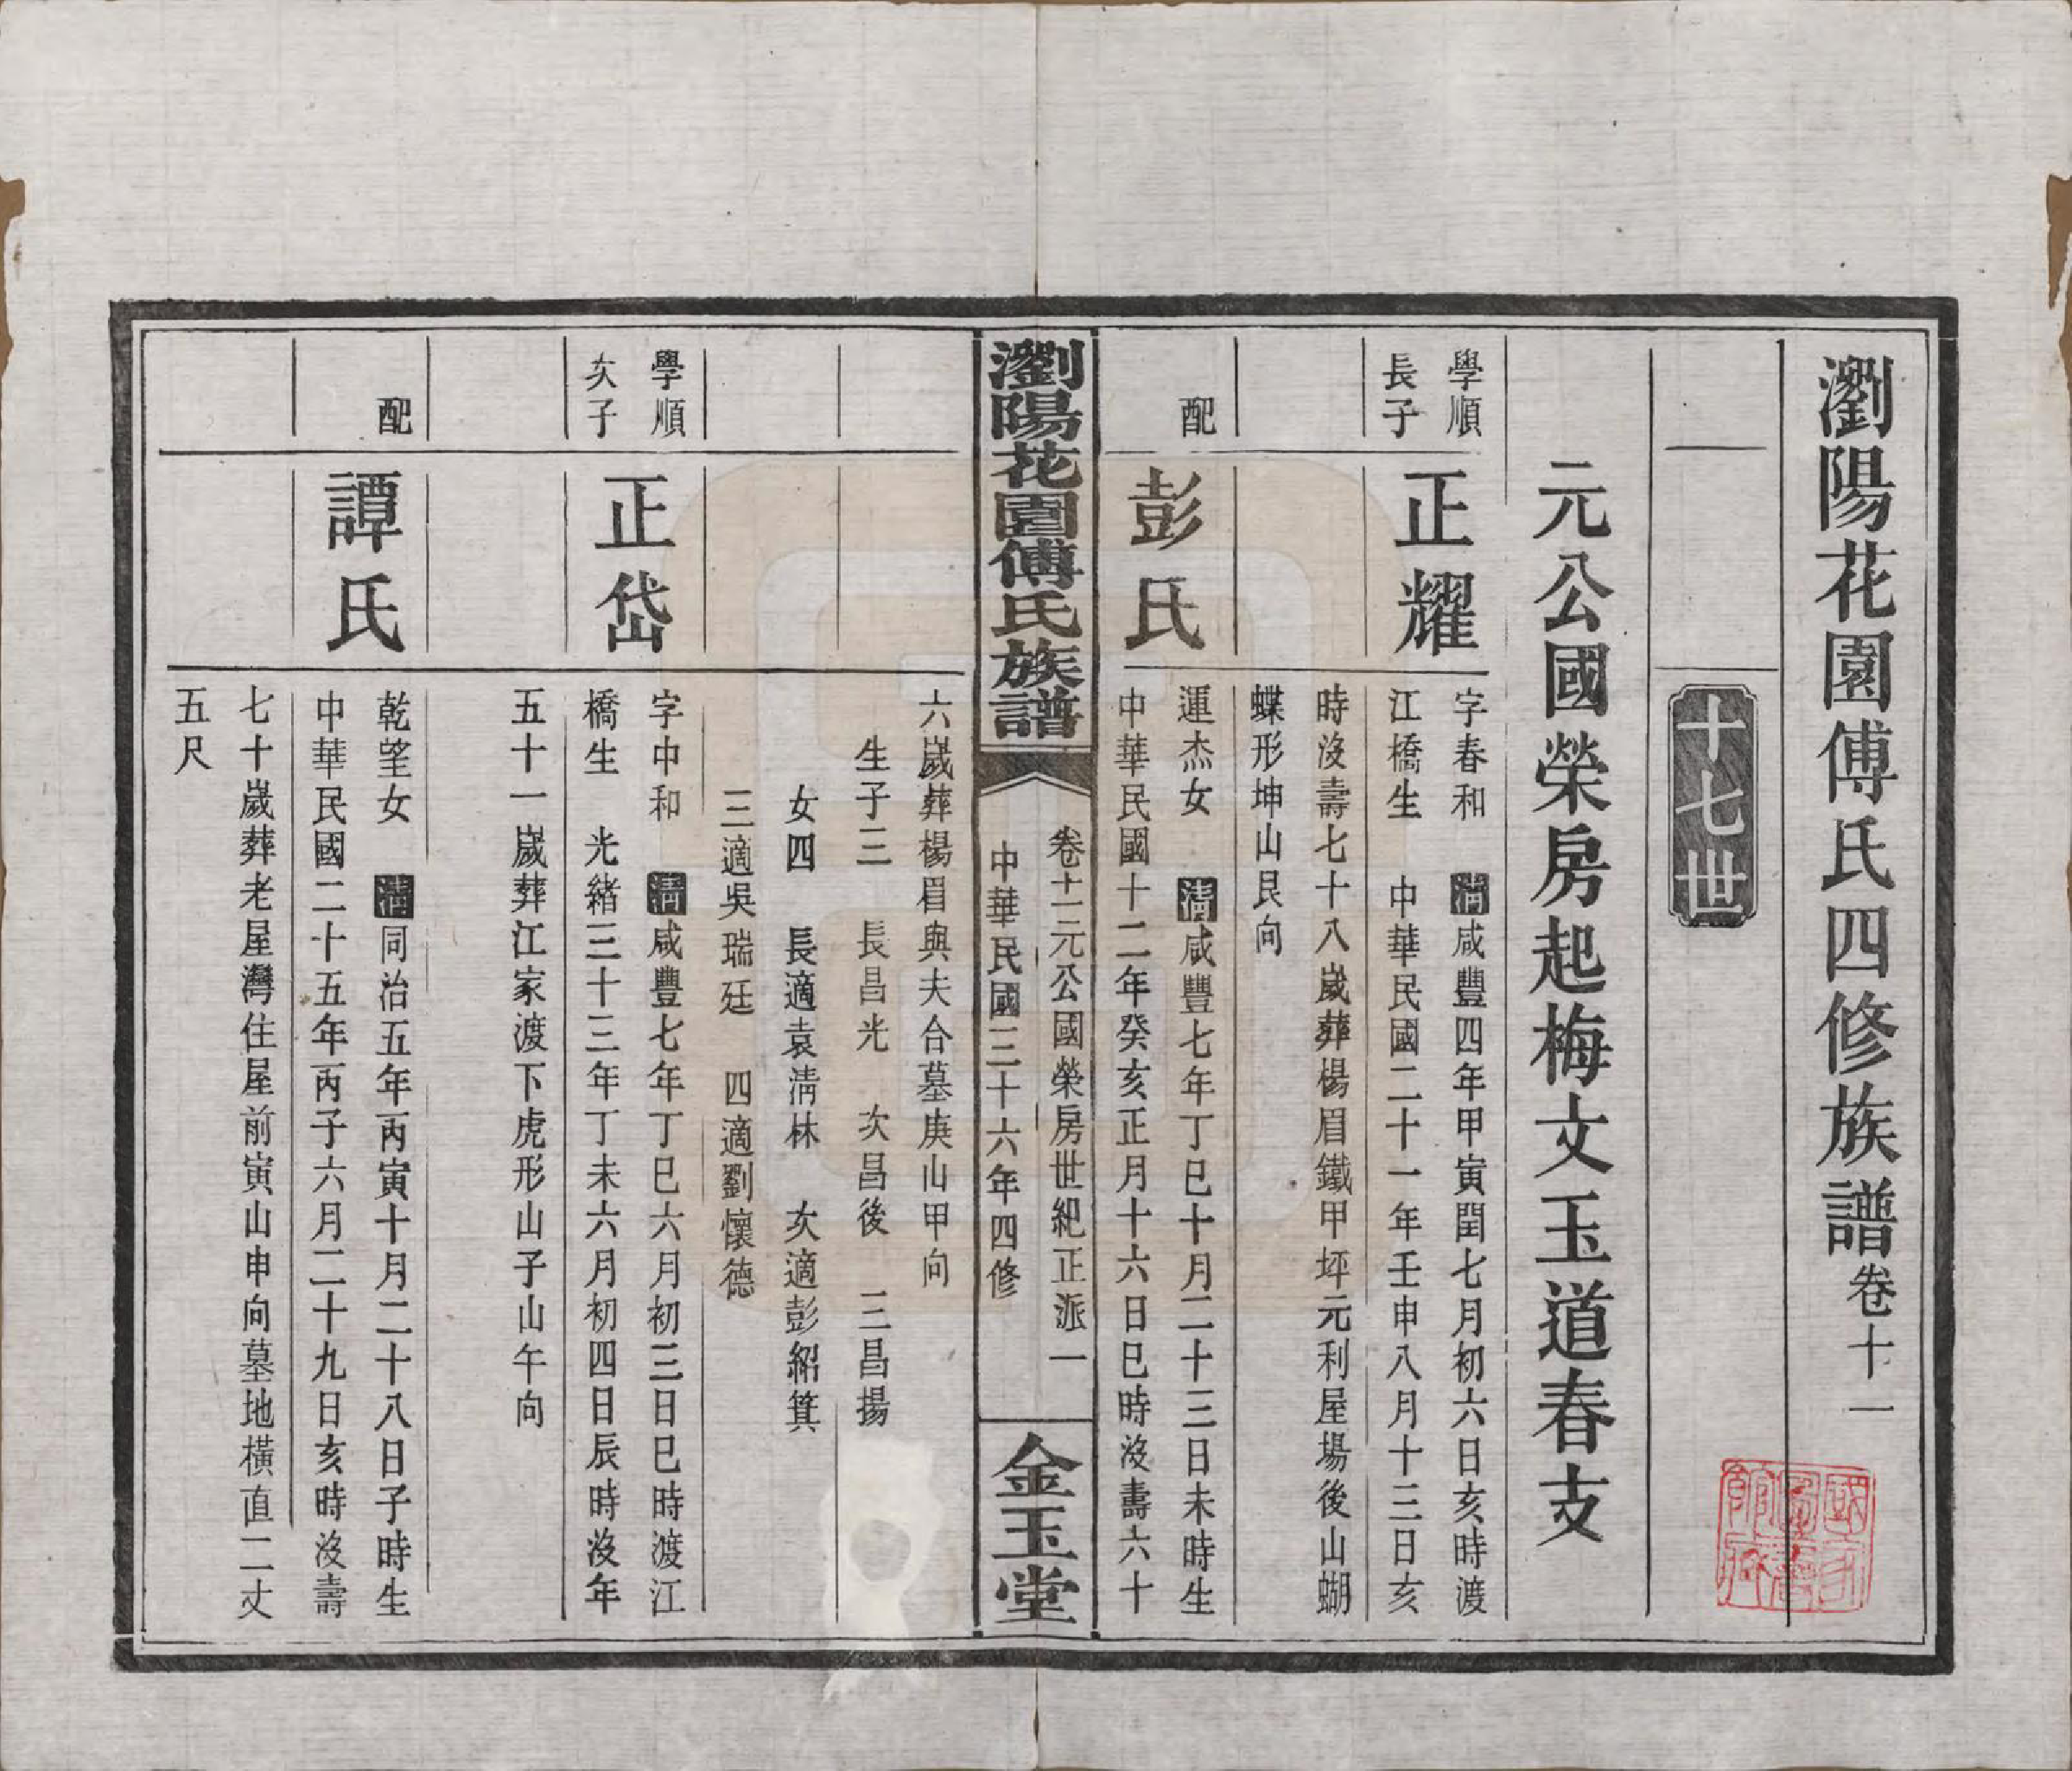 瀏陽花園傅氏四修族譜卷十一
十七世
元公國榮房起梅文玉道春支
學順
長子
正耀
字春和　清咸豐四年甲寅閏七月初六日亥時渡
江橋生　中華民國二十一年壬申八月十三日亥
時沒壽七十八歲葬楊眉鐵甲坪元利屋場後山蝴
蝶形坤山艮向
配
彭氏
運杰女　清咸豐七年丁巳十月二十三日未時生
中華民國十二年癸亥正月十六日巳時沒壽六十
瀏陽花園傅氏族譜
卷十一元公國榮房世紀正派一
中華民國三十六年四修
金玉堂
六歲葬楊眉與夫合墓庚山甲向
生子三　長昌光　次昌後　三昌揚
女四　長適袁清林　次適彭紹箕
三適吳瑞廷　四適劉懷德
學順
次子
正岱
字中和　清咸豐七年丁巳六月初三日巳時渡江
橋生　光緒三十三年丁未六月初四日辰時沒年
五十一歲葬江家渡下虎形山子山午向
配
譚氏
乾望女　清同治五年丙寅十月二十八日子時生
中華民國二十五年丙子六月二十九日亥時沒壽
七十歲葬老屋灣住屋前寅山申向墓地橫直二丈
五尺